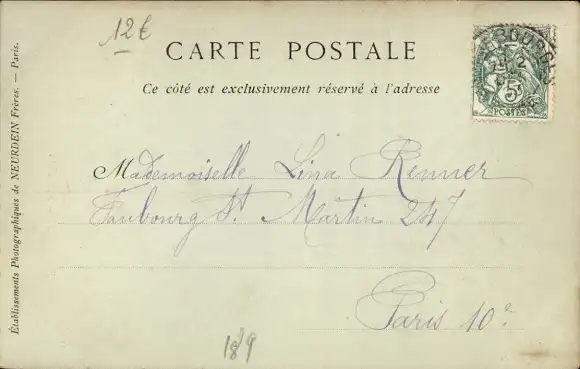 12€
CARTE POSTALE
Ce côté est exclusivement réservé à l'adresse
Mademoiselle Lina Renner
Faubourg St. Martin 247
Paris 10e
189
Établissements Photographiques de NEURDEIN Frères. — Paris.
BOURGES
5
POSTES